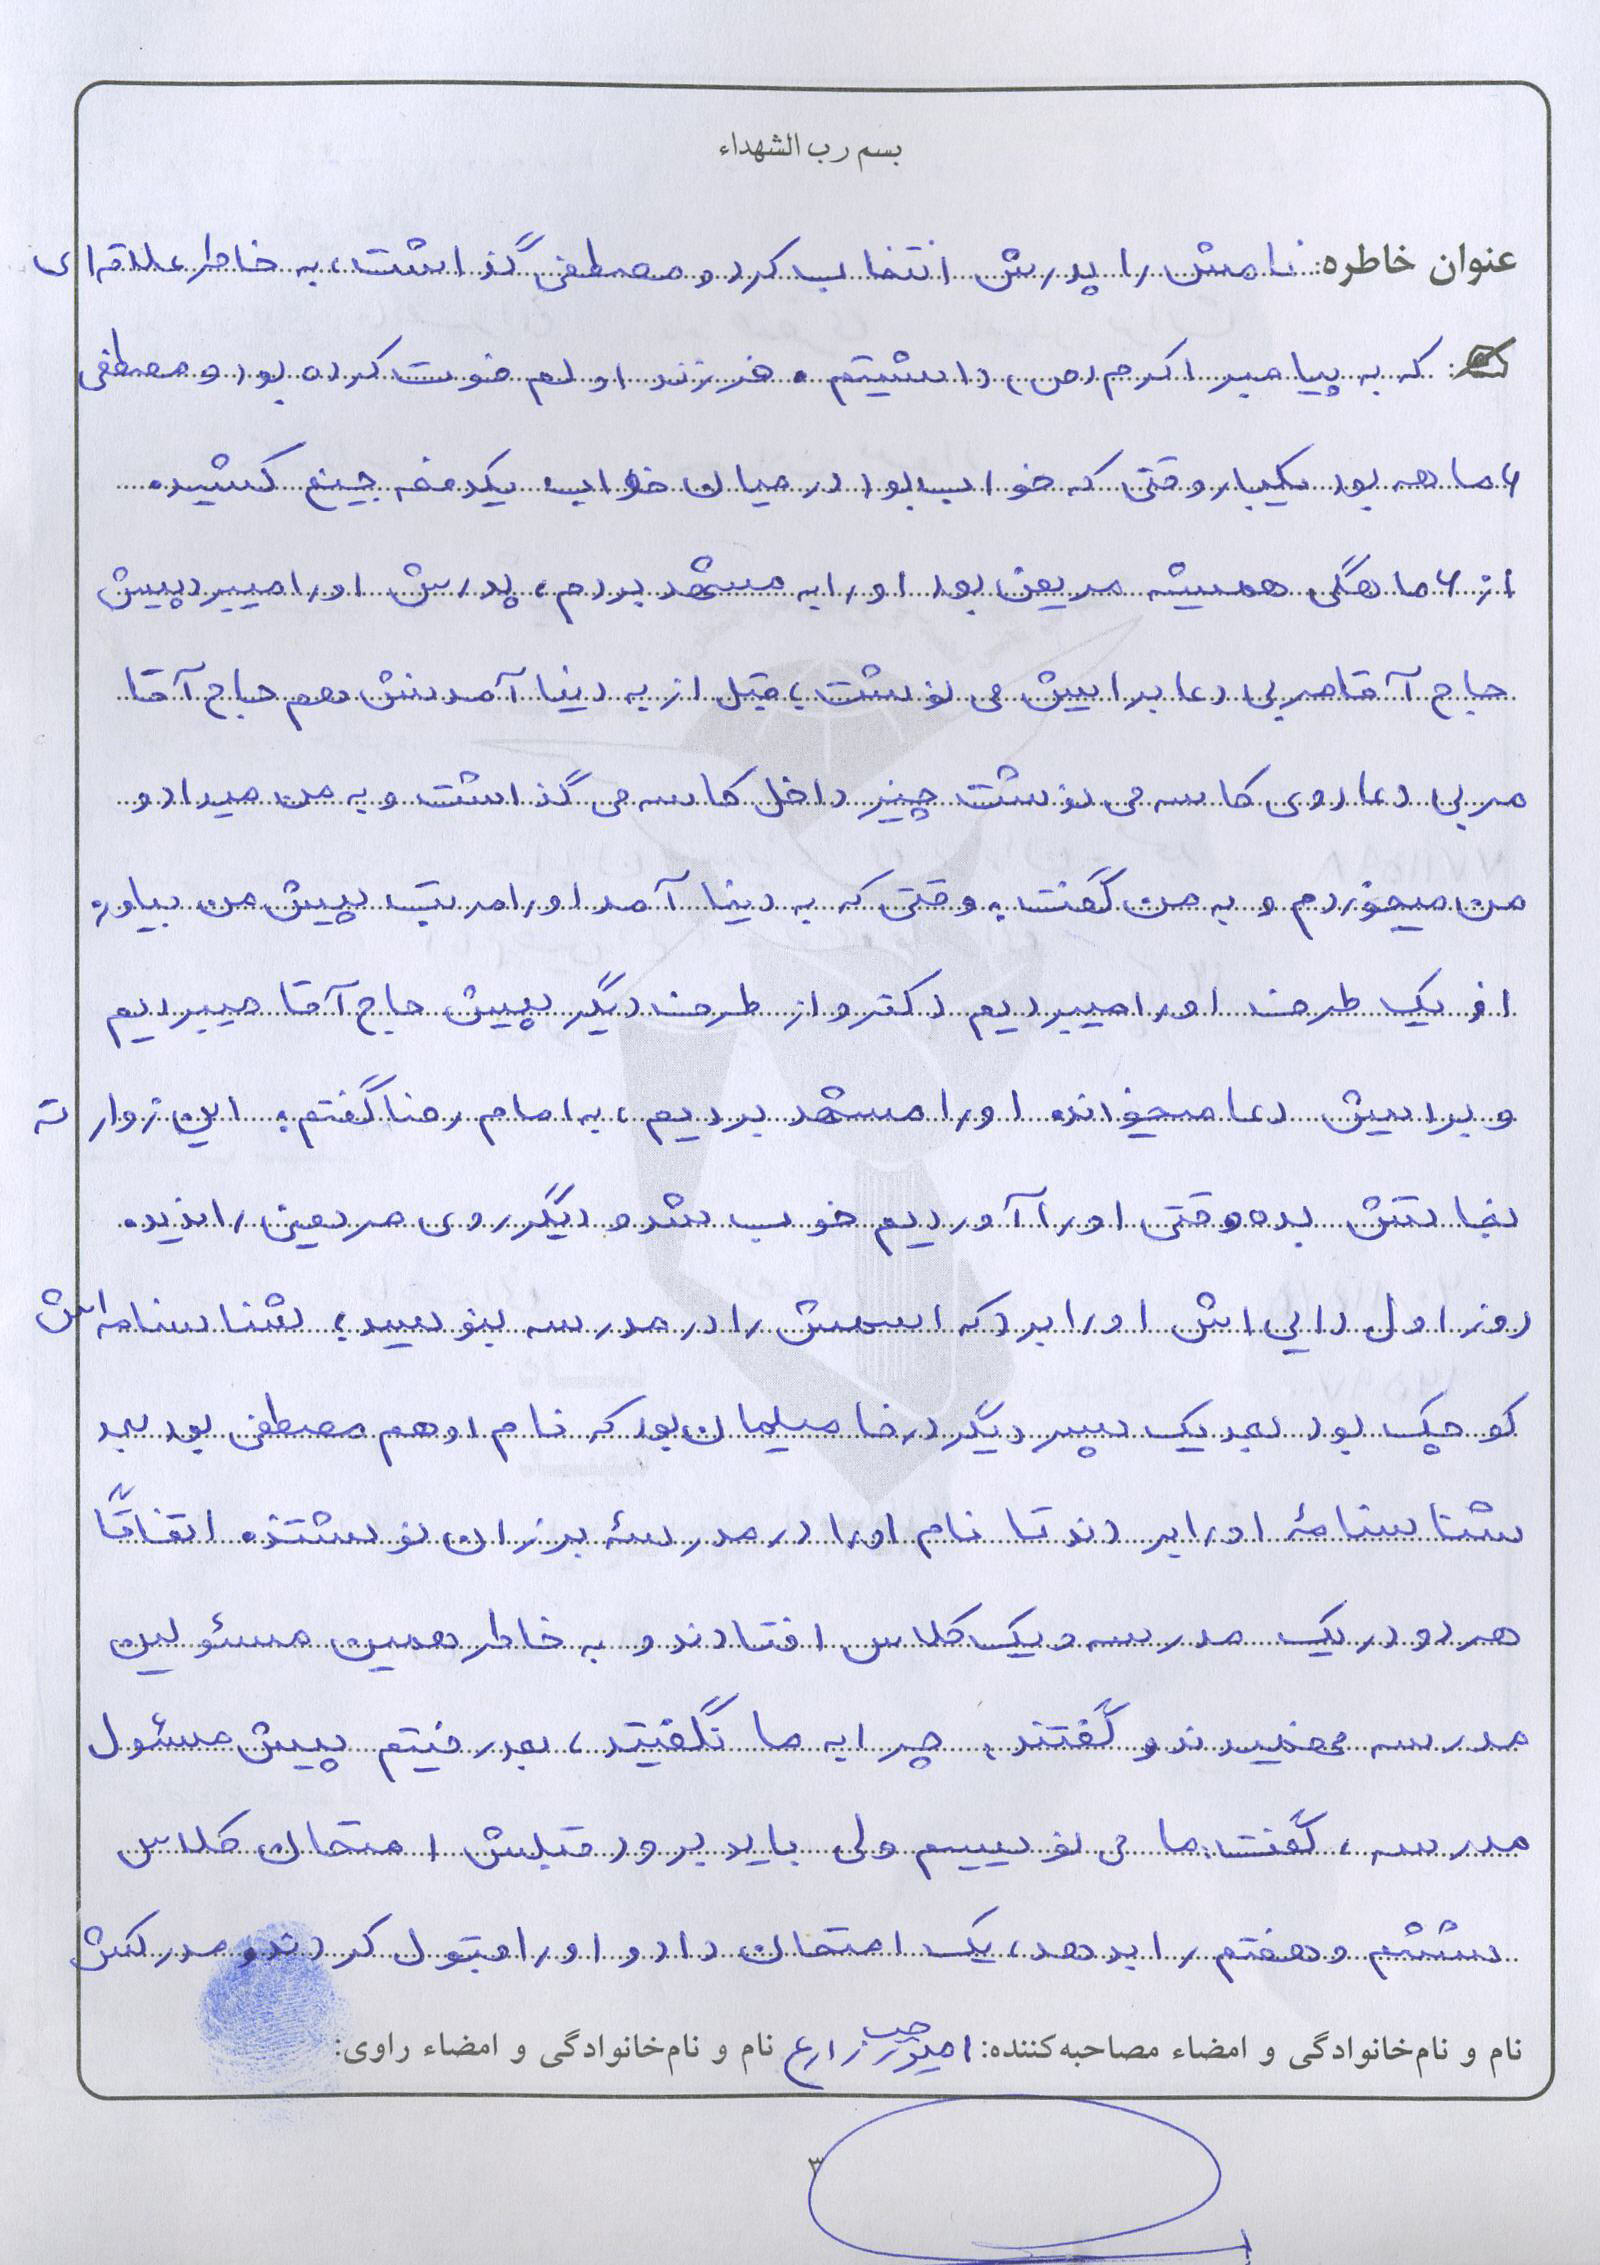 بسم رب الشهداء
عنوان خاطره: نامش را پدرش انتخاب کرد و مصطفی گذاشت، به خاطر علاقه‌ای
که به پیامبر اکرم (ص) داشتیم. فرزند اولم فوت کرده بود و مصطفی
۶ ماهه بود یکبار وقتی که خواب بود در میان خواب یکدفعه جیغ کشید.
از ۶ ماهگی همیشه مریض بود او را به مشهد بردم، پدرش او را میبرد پیش
حاج آقا مربی دعا برایش می نوشت، قبل از به دنیا آمدنش هم حاج آقا
مربی دعا روی کاسه می نوشت چیز داخل کاسه می گذاشت و به من میداد و
من میخوردم و به من گفت: وقتی که به دنیا آمد او را مرتب پیش من بیاور.
از یک طرف او را میبردیم دکتر و از طرف دیگر پیش حاج آقا میبردیم
و برایش دعا میخواند او را مشهد بردیم، به امام رضا گفتم: این زوار ته
نجاتش بده وقتی او را آوردیم خوب شد و دیگر روی مریضی را ندید.
روز اول دایی اش او را برد که اسمش را در مدرسه بنویسید؛ شناسنامه اش
کوچک بود بعد یک پسر دیگر در خانواده‌مان بود که نام او هم مصطفی بود بعد
شناسنامهٔ او را بردند تا نام او را در مدرسهٔ برزان نوشتند. اتفاقاً
هر دو در یک مدرسه و یک کلاس افتادند و به خاطر همین مسئولین
مدرسه فهمیدند و گفتند: چرا به ما نگفتید، بعد رفتیم پیش مسئول
مدرسه، گفت: ما می نویسیم ولی باید برود قبلش امتحان کلاس
ششم و هفتم را بدهد، یک امتحان داد و او را قبول کردند و مدرکش
نام و نام‌خانوادگی و امضاء مصاحبه‌کننده: زارع نام و نام‌خانوادگی و امضاء راوی:
۳